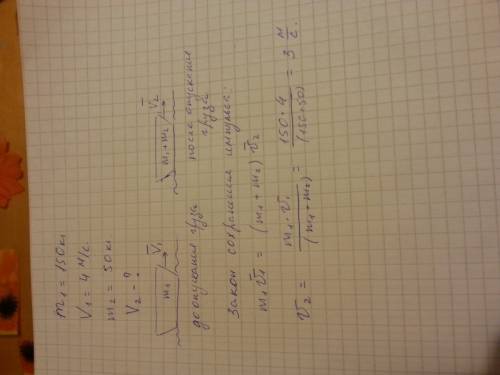 m₁ = 150 кг
V₁ = 4 м/с
m₂ = 50 кг
V₂ - ?
m₁ V̅₁
m₁+m₂ V̅₂
до опускания груза
после опускания груза
Закон сохранения импульса:
m₁v̅₁ = (m₁ + m₂) v̅₂
v₂ = m₁ · v₁ / (m₁ + m₂) = 150 · 4 / (150+50) = 3 м/с.